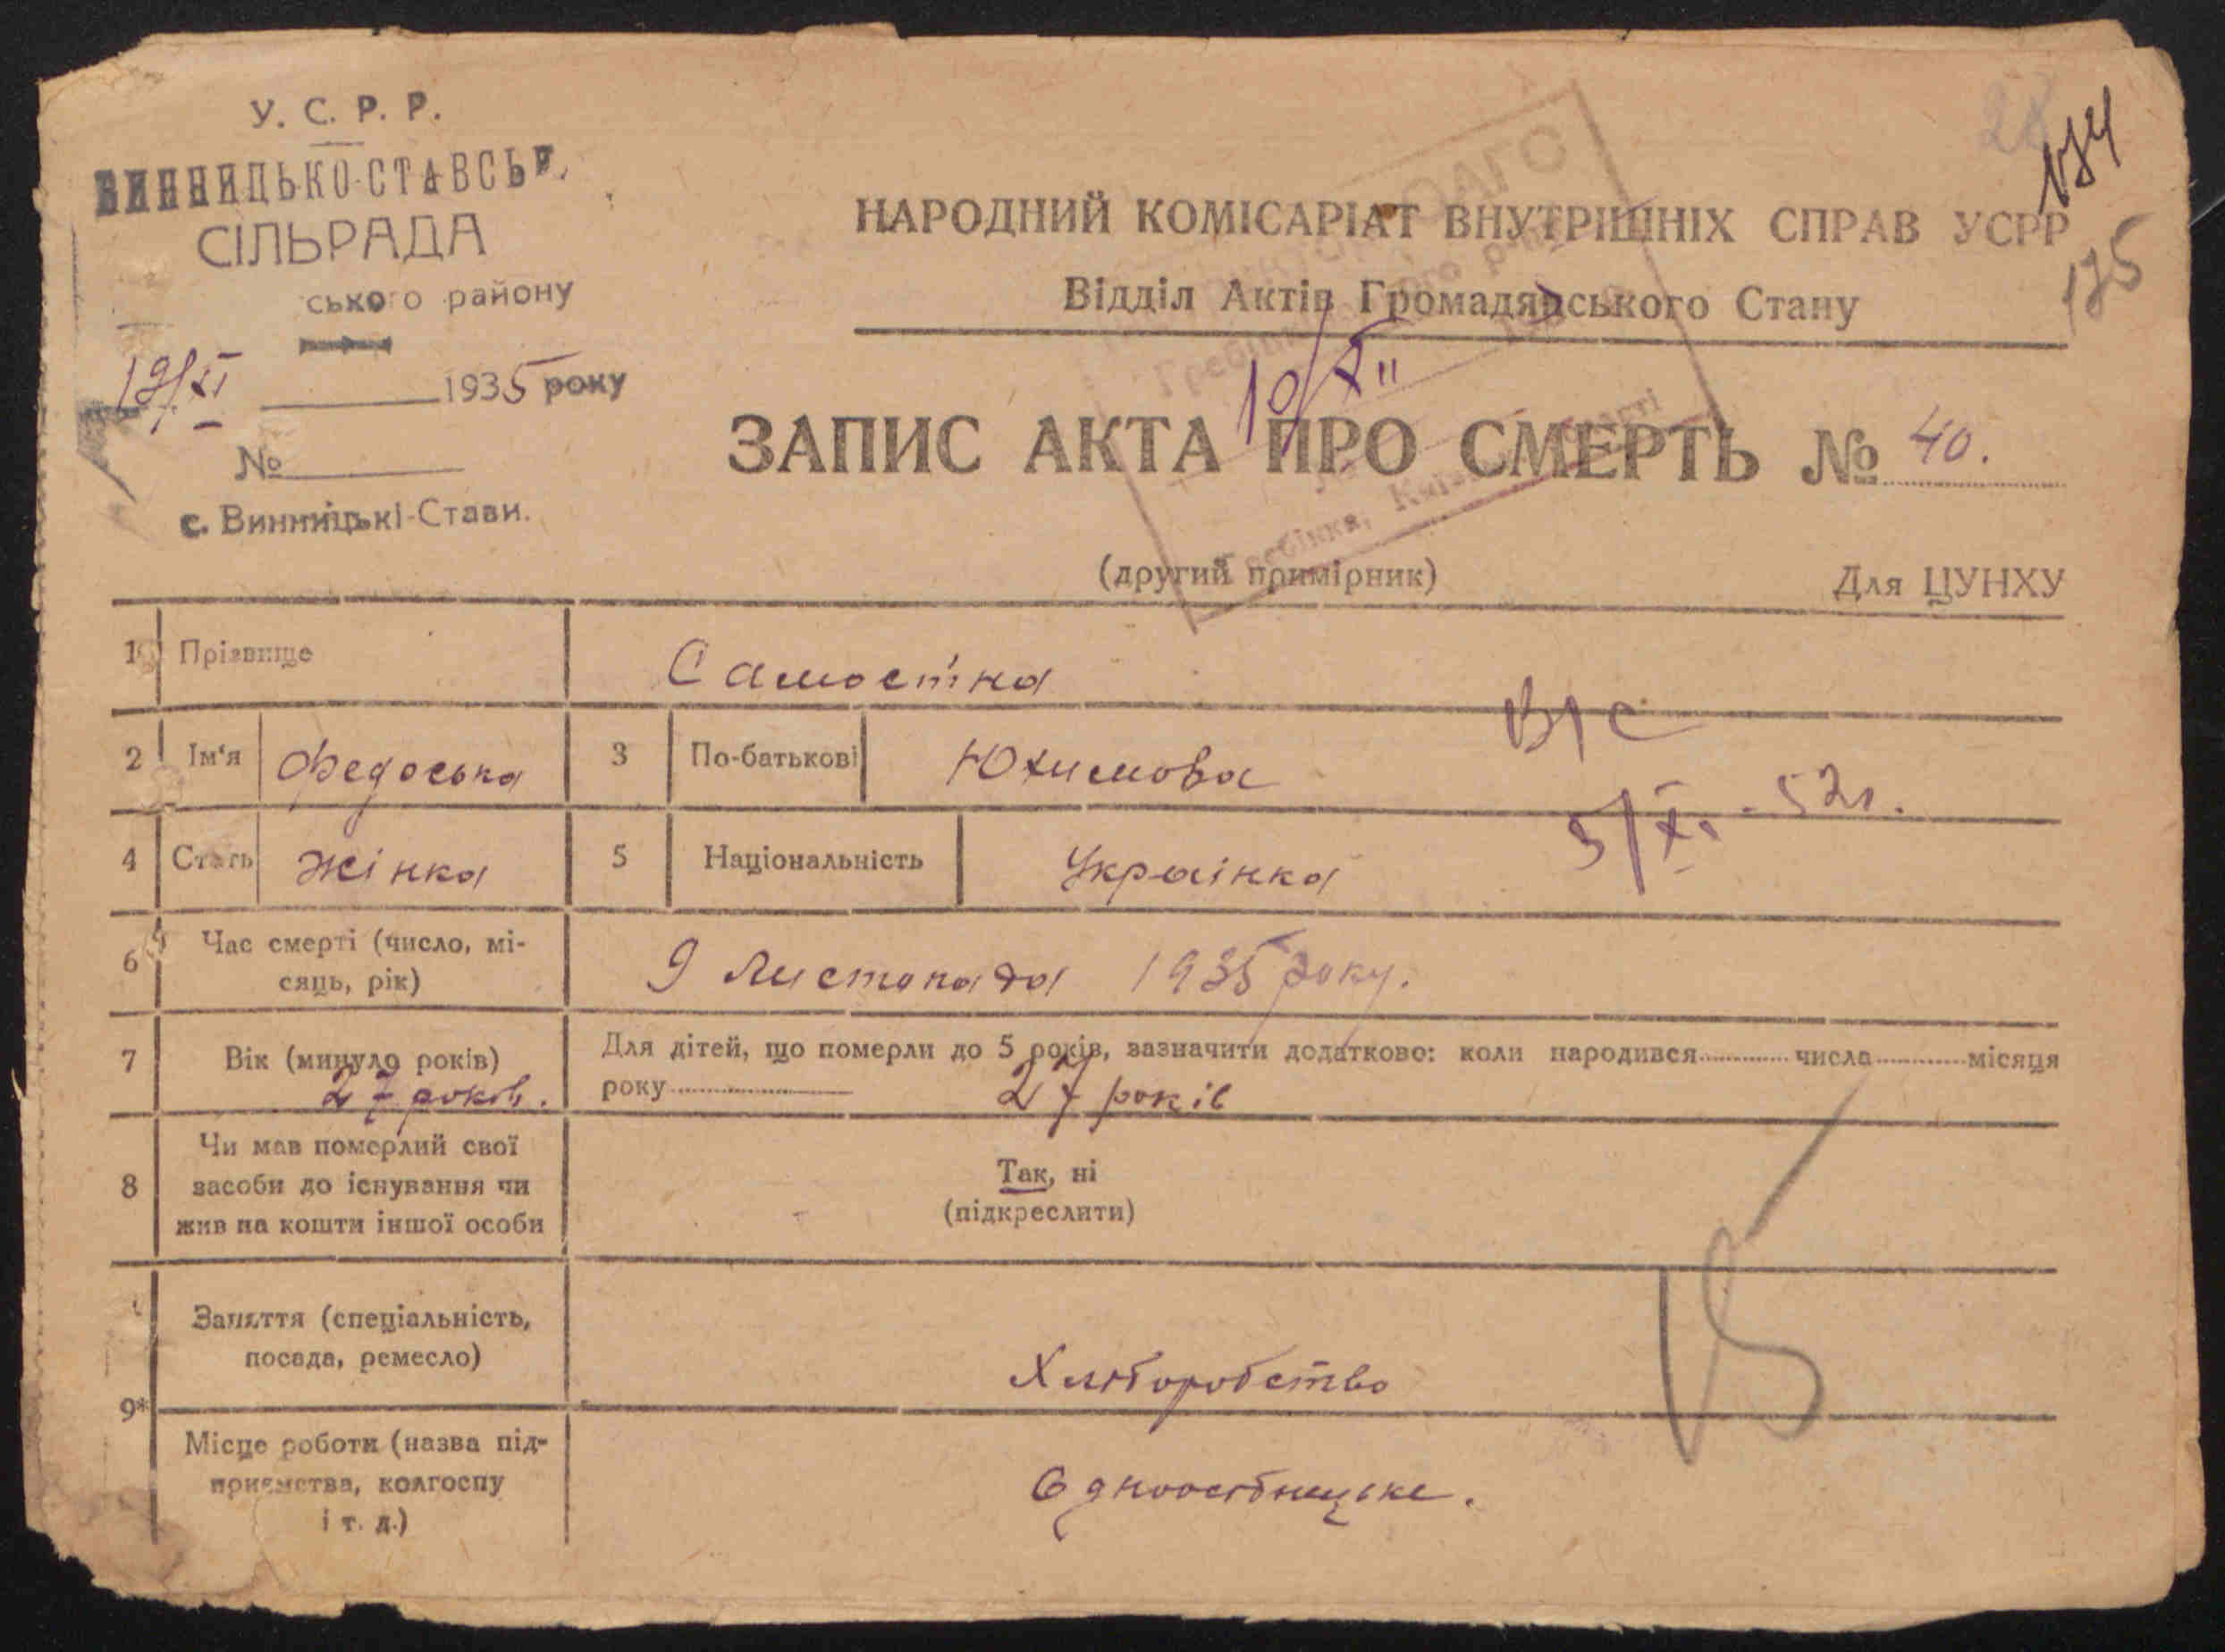 У. С. Р. Р.
ВИННИЦЬКО-СТАВСЬК.
СІЛЬРАДА
ського району
19/XI 1935 року
№
с. Винницькі-Стави.
174
175
НАРОДНИЙ КОМІСАРІАТ ВНУТРІШНІХ СПРАВ УСРР
Відділ Актів Громадянського Стану
10/XII
ЗАПИС АКТА ПРО СМЕРТЬ № 40.
(другий примірник) Для ЦУНХУ
1 Прізвище Самостна
2 Ім'я Федоська 3 По-батькові Юхимова
5/XI - 52г.
4 Стать Жінка 5 Національність Українка
6 Час смерті (число, мі-
сяць, рік) 9 Листопада 1935 року.
7 Вік (минуло років) 27 років. Для дітей, що померли до 5 років, зазначити додатково: коли народився числа місяця
року 27 років
8 Чи мав померлий свої
засоби до існування чи
жив на кошти іншої особи
Так, ні
(підкреслити)
9* Заняття (спеціальність,
посада, ремесло) Хліборобство
Місце роботи (назва під-
приємства, колгоспу
і т. д.) Одноосібницьке.
15